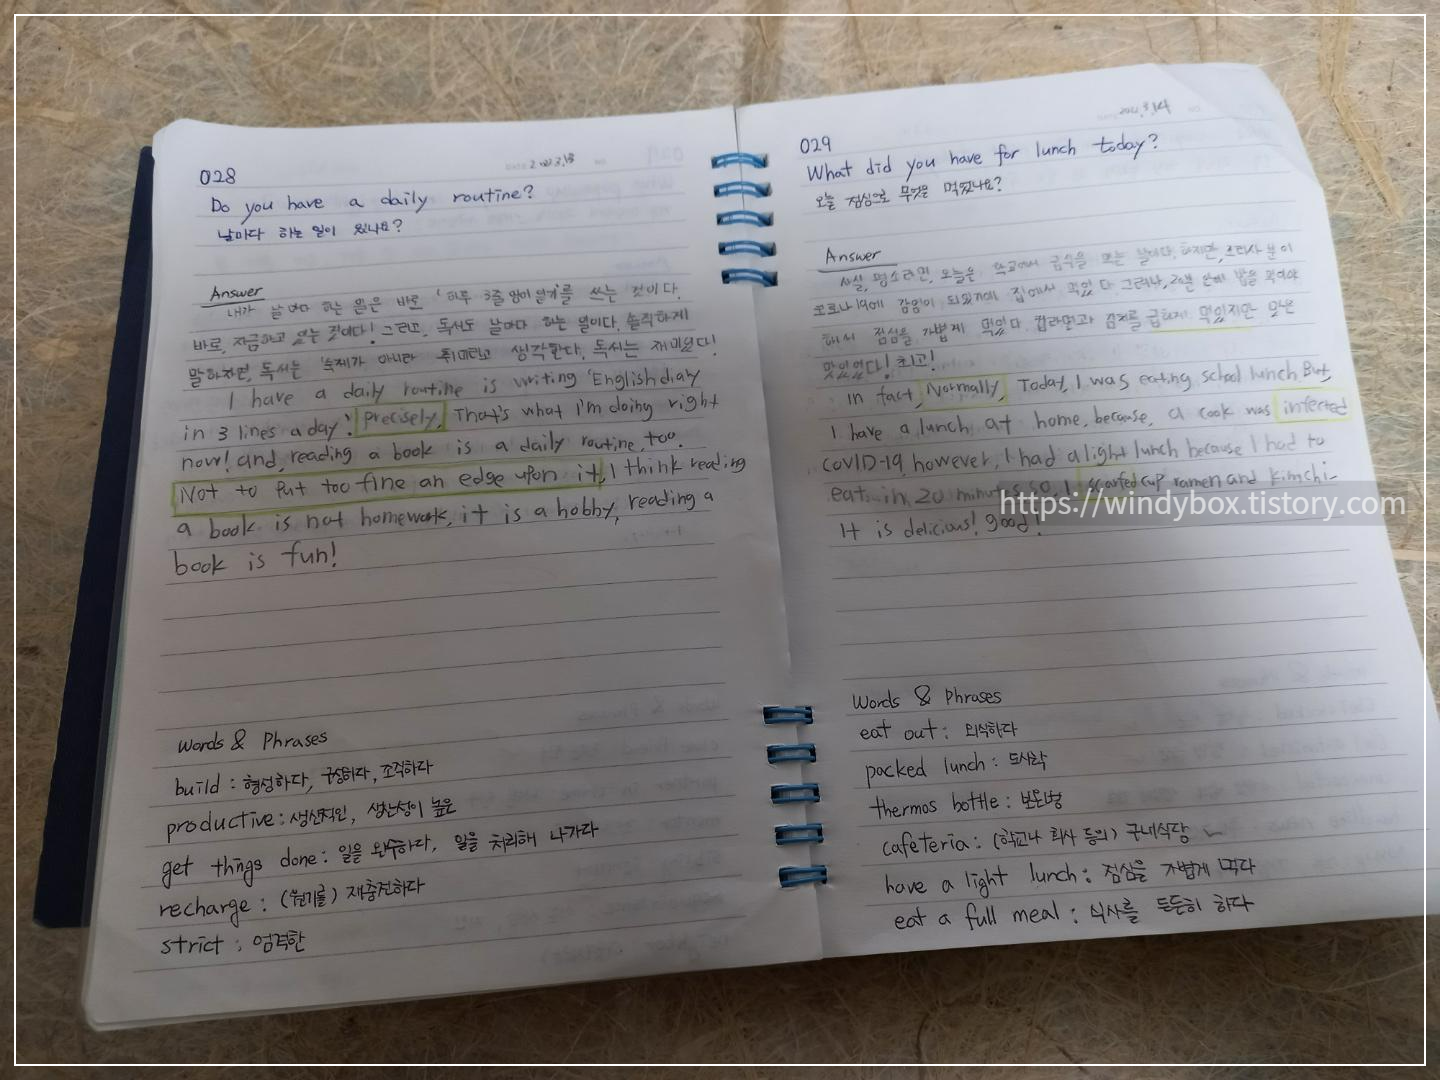 028
2022.3.13
Do you have a daily routine?
날마다 하는 일이 있나요?
Answer
내가 날마다 하는 일은 바로 '하루 3줄 영어일기'를 쓰는 것이다.
바로, 지금하고 있는 것이다! 그리고, 독서도 날마다 하는 일이다. 솔직하게
말하자면, 독서는 숙제가 아니라 취미라고 생각한다. 독서는 재미있다!
I have a daily routine is writing 'English diary
in 3 lines a day'. Precisely, That's what I'm doing right
now! and, reading a book is a daily routine, too.
Not to put too fine an edge upon it, I think reading
a book is not homework, it is a hobby, reading a
book is fun!
Words & Phrases
build : 형성하다, 구성하다, 조직하다
productive : 생산적인, 생산성이 높은
get things done : 일을 완수하다, 일을 처리해 나가다
recharge : (원기를) 재충전하다
strict : 엄격한
029
2022.3.14
What did you have for lunch today?
오늘 점심으로 무엇을 먹었나요?
Answer
사실, 평소라면, 오늘은 학교에서 급식을 먹는 날이다. 하지만, 조리사 분이
코로나19에 감염이 되었기에 집에서 먹었다. 그러나, 20분 안에 밥을 먹어야
해서 점심을 가볍게 먹었다. 컵라면과 김치를 급하게 먹었지만 맛은
맛있었다! 최고!
In fact, Normally, Today, I was eating school lunch But,
I have a lunch at home, because, a cook was infected
COVID-19, however, I had a light lunch because I had to
eat in 20 minutes so, I scarfed cup ramen and kimchi.
It is delicious! good!
Words & Phrases
eat out : 외식하다
packed lunch : 도시락
thermos bottle : 보온병
cafeteria : (학교나 회사 등의) 구내식당
have a light lunch : 점심을 가볍게 먹다
eat a full meal : 식사를 든든히 하다
https://windybox.tistory.com